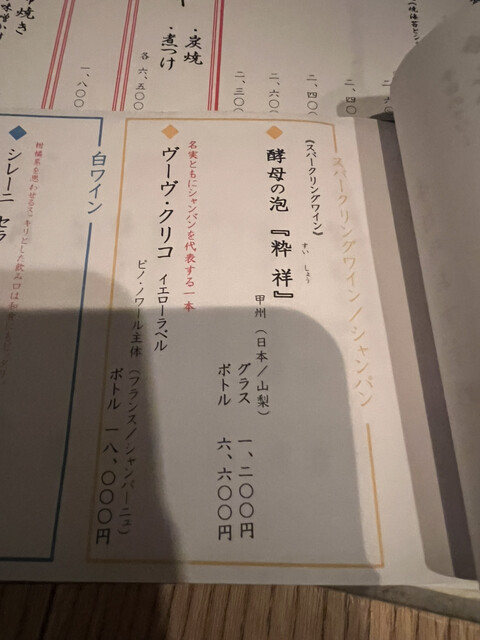 ・炭焼
・煮つけ
各 六、五〇〇
一、八〇〇
二、三〇
二、六〇
二、四〇
二、四〇
スパークリングワイン／シャンパン
《スパークリングワイン》
酵母の泡 『粋 祥』
すい しょう
甲州 （日本／山梨）
グラス 一、二〇〇円
ボトル 六、六〇〇円
名実ともにシャンパンを代表する一本
ヴーヴ・クリコ イエローラベル
ピノ・ノワール主体 （フランス／シャンパーニュ）
ボトル 一八、〇〇〇円
白ワイン
柑橘系を思わせるスッキリとした飲み口は和食
シレーニ セラ